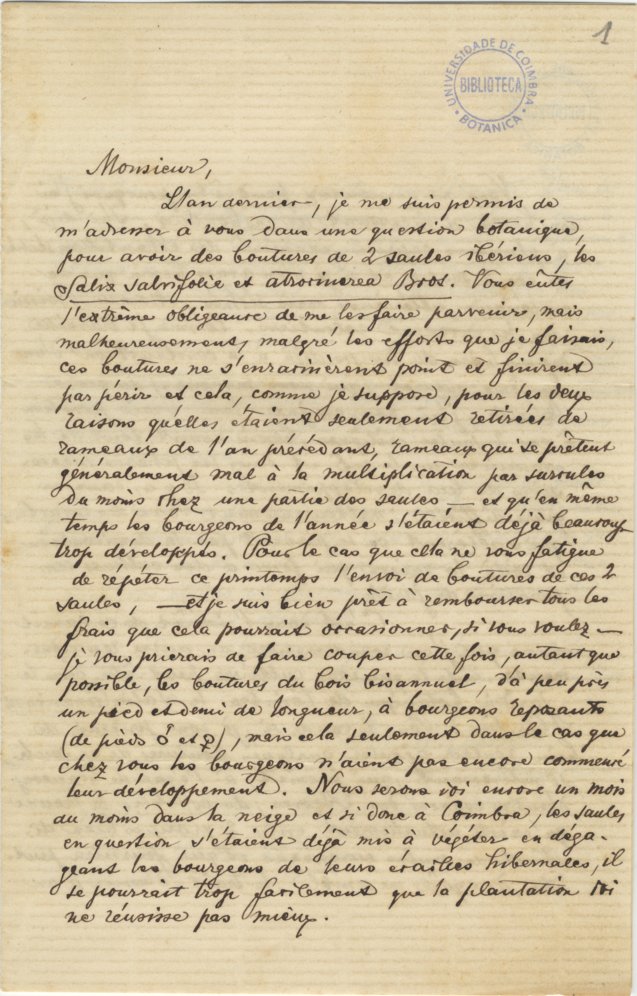 1
UNIVERSIDADE DE COIMBRA
BIBLIOTECA
BOTANICA
Monsieur,
L'an dernier, je me suis permis de
m'adresser à vous dans une question botanique,
pour avoir des boutures de 2 saules ibériens, les
Salix salvifolia et atrocinerea Brot. Vous eûtes
l'extrême obligeance de me les faire parvenir, mais
malheureusement, malgré les efforts que je faisais,
ces boutures ne s'enracinèrent point et finirent
par périr et cela, comme je suppose, pour les deux
raisons qu'elles étaient seulement retirées de
rameaux de l'an précédant, rameaux qui se prêtent
généralement mal à la multiplication par surcules
du moins chez une partie des saules — et qu'en même
temps les bourgeons de l'année s'étaient déjà beaucoup
trop développés. Pour le cas que cela ne vous fatigue
de répéter ce printemps l'envoi de boutures de ces 2
saules, — et je suis bien prêt à rembourser tous les
frais que cela pourrait occasionner, si vous voulez —
je vous prierais de faire couper cette fois, autant que
possible, les boutures du bois bisannuel, d'à peu près
un pied et demi de longueur, à bourgeons reposants
(de pieds ♂ et ♀), mais cela seulement dans le cas que
chez vous les bourgeons n'aient pas encore commencé
leur développement. Nous serons ici encore un mois
au moins dans la neige et si donc à Coimbra, les saules
en question s'étaient déjà mis à végéter en déga-
geant les bourgeons de leurs écailles hibernales, il
se pourrait trop facilement que la plantation ici
ne réussisse pas mieux.